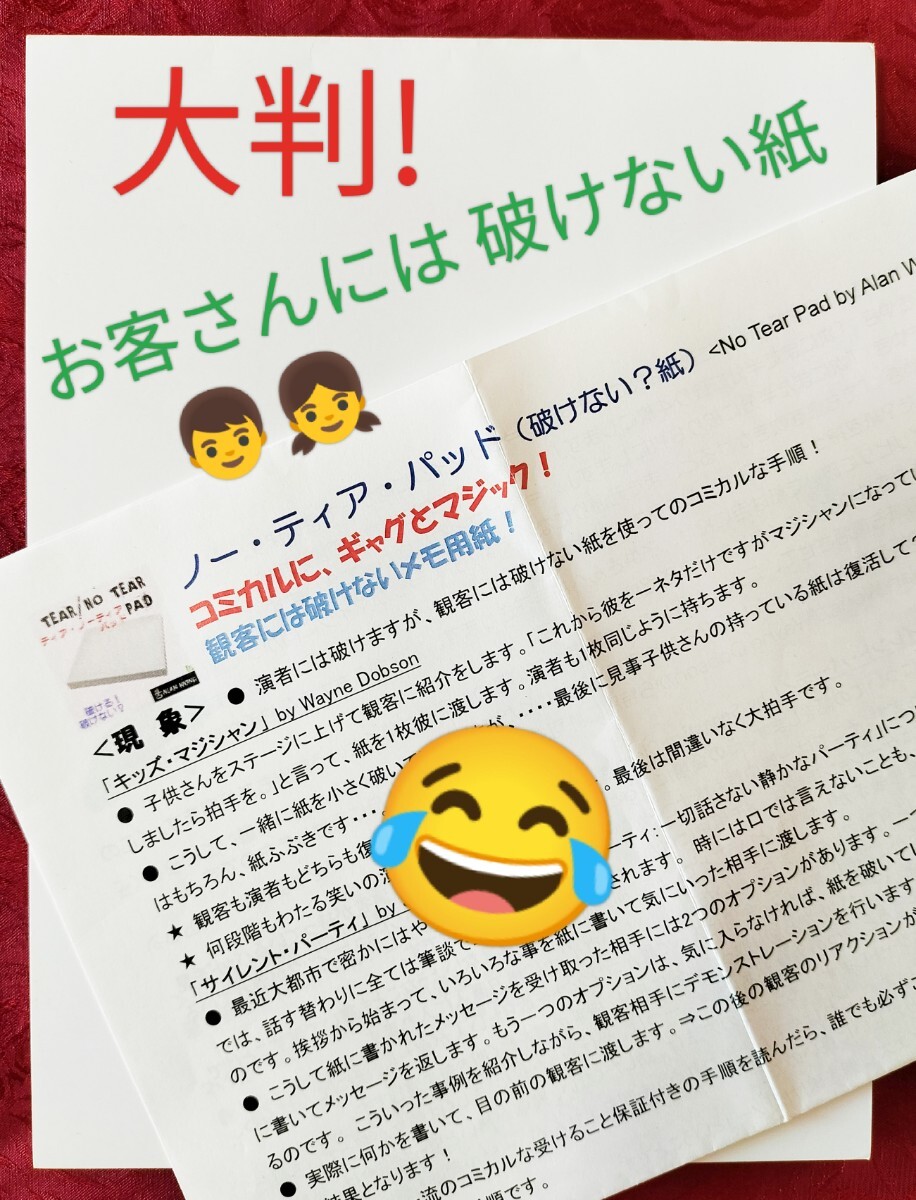 大判!
お客さんには 破けない紙
ノー・ティア・パッド（破けない？紙）<No Tear Pad by Alan W
コミカルに、ギャグとマジック！
観客には破けないメモ用紙！
TEAR/NO TEAR
PAD
ティア・ノーティア
パッド
ALAN WONG
破ける！
破けない？
● 演者には破けますが、観客には破けない紙を使ってのコミカルな手順！
<現 象>
「キッズ・マジシャン」by Wayne Dobson
● 子供さんをステージに上げて観客に紹介をします。「これから彼を一ネタだけですがマジシャンになってい
しましたら拍手を。」と言って、紙を1枚彼に渡します。演者も1枚同じように持ちます。
● こうして、一緒に紙を小さく破いて が、・・・・最後に見事子供さんの持っている紙は復活して
はもちろん、紙ふぶきです・・・ 。最後は間違いなく大拍手です。
★ 観客も演者もどちらも復
★ 何段階もわたる笑いの
「サイレント・パーティ」by
● 最近大都市で密かにはや ーティ:一切話さない静かなパーティ」につ
では、話す替わりに全ては筆談で されます。時には口では言えないことも、
のです。挨拶から始まって、いろいろな事を紙に書いて気にいった相手に渡します。
● こうして紙に書かれたメッセージを受け取った相手には2つのオプションがあります。一
に書いてメッセージを返します。もう一つのオプションは、気に入らなければ、紙を破いて
るのです。こういった事例を紹介しながら、観客相手にデモンストレーションを行います
● 実際に何かを書いて、目の前の観客に渡します。⇒この後の観客のリアクションが
結果となります！
流のコミカルな受けること保証付きの手順を読んだら、誰でも必ずこ
順です。